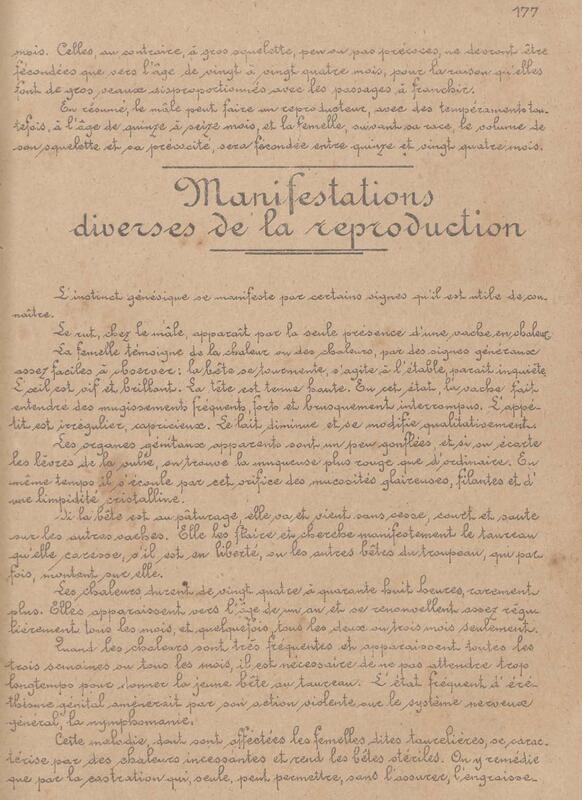 177
mois. Celles, au contraire, à gros squelette, peu ou pas précoces, ne devront être
fécondées que vers l'âge de vingt à vingt quatre mois, pour la raison qu'elles
font de gros veaux disproportionnés avec les passages à franchir.
En résumé, le mâle peut faire un reproducteur, avec des tempéraments tou-
tefois, à l'âge de quinze à seize mois, et la femelle, suivant sa race, le volume de
son squelette et sa précocité, sera fécondée entre quinze et vingt quatre mois.
Manifestations
diverses de la reproduction
L'instinct génésique se manifeste par certains signes qu'il est utile de con-
naître.
Le rut, chez le mâle, apparaît par la seule présence d'une vache en chaleur.
La femelle témoigne de la chaleur ou des chaleurs, par des signes généraux
assez faciles à observer : la bête se tourmente, s'agite à l'étable, parait inquiète.
L'œil est vif et brillant. La tête est tenue haute. En cet état, la vache fait
entendre des mugissements fréquents, forts et brusquement interrompus. L'appé-
tit est irrégulier, capricieux. Le lait diminue et se modifie qualitativement.
Les organes génitaux apparents sont un peu gonflés et si on écarte
les lèvres de la vulve, on trouve la muqueuse plus rouge que d'ordinaire. En
même temps il s'écoule par cet orifice des mucosités glaireuses, filantes et d'
une limpidité cristalline.
Si la bête est au pâturage, elle va et vient sans cesse, court et saute
sur les autres vaches. Elle les flaire et cherche manifestement le taureau
qu'elle caresse, s'il est en liberté, ou les autres bêtes du troupeau, qui par-
fois, montent sur elle.
Les chaleurs durent de vingt quatre à quarante huit heures, rarement
plus. Elles apparaissent vers l'âge de un an et se renouvellent assez régu-
lièrement tous les mois, et quelquefois, tous les deux ou trois mois seulement.
Quand les chaleurs sont très fréquentes en apparaissant toutes les
trois semaines ou tous les mois, il est nécessaire de ne pas attendre trop
longtemps pour donner la jeune bête au taureau. L'état fréquent d'éré-
thisme génital amènerait par son action violente sur le système nerveux
général, la nymphomanie.
Cette maladie dont sont affectées les femelles dites taurelières, se carac-
térise par des chaleurs incessantes et rend les bêtes stériles. On y remédie
que par la castration qui, seule, peut permettre, sans l'assurer, l'engraisse-